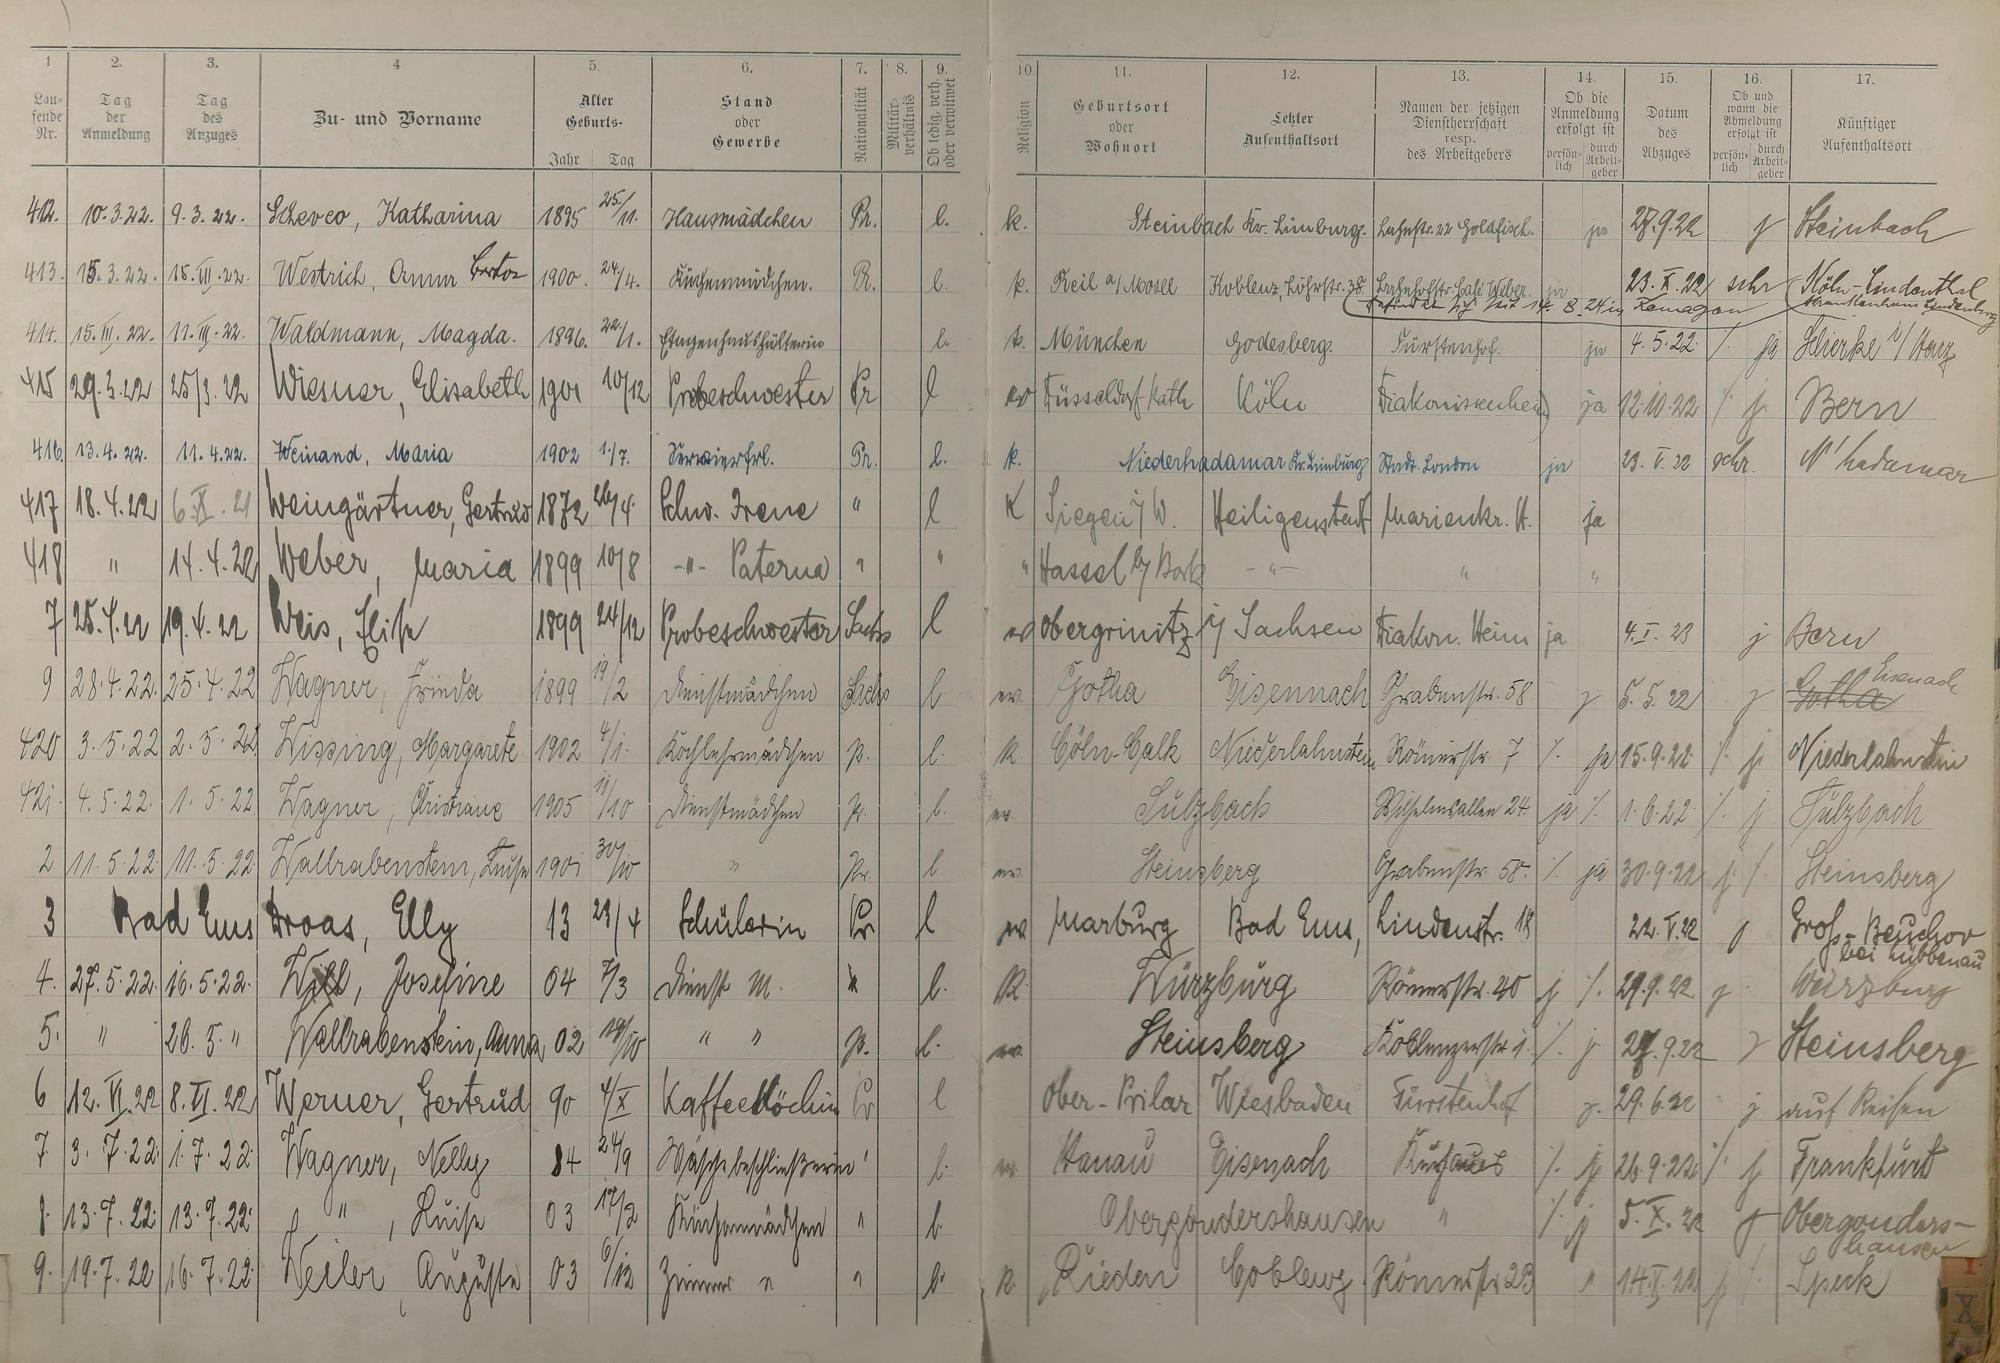 1 2. 3. 4 5. 6. 7. 8. 9. 10. 11. 12. 13. 14. 15. 16. 17.
Lau-fende Nr. Tag der Anmeldung Tag des Anzuges Zu- und Vorname Alter Geburts- Jahr Tag Stand oder Gewerbe Nationalität Militär-verhältnis Ob ledig, verh. oder verwitwet Religion Geburtsort oder Wohnort Letzter Aufenthaltsort Namen der jetzigen Dienstherrschaft resp. des Arbeitgebers Ob die Anmeldung erfolgt ist persön-lich durch Arbeit-geber Datum des Abzuges Ob und wann die Abmeldung erfolgt ist persön-lich durch Arbeit-geber Künftiger Aufenthaltsort
412. 10.3.22. 9.3.22. Katharina 1895 25/11. Hausmädchen Pr. l. k. Steinbach Kr. Limburg. Lahnstr. 22 Goldfisch. ja 27.9.22 j Steinbach
413. 15.3.22. 15.III.22. Westrich, Anna 1900. 24/4. Küchenmädchen. Pr. l. k. Reil a/Mosel Koblenz, Löhrstr. 38. Bahnhofstr. Weber. ja 23.X.22 schr Köln-Lindenthal
befindet sich seit 14.8.24 in Remagen Krankenhaus Lindenburg
414. 15.III.22. 11.III.22. Waldmann, Magda. 1896. 22/1. Etagenhaushälterin l. k. München Godesberg. Fürstenhof. ja 4.5.22. /. ja Schierke i/Harz
415 29.3.22 25/3.22 Wiesner, Elisabeth 1901 10/12 Probeschwester Pr l ev Düsseldorf Rath Köln Diakonissenheim ja 12.10.22 /. j. Bern
416. 13.4.22. 11.4.22. Weinand, Maria 1902 1./7. Servierfrl. Pr. l. k. Niederhadamar Kr. Limburg Stadt London ja 23.V.22 schr. N'hadamar
417 18.4.22 6.XI.21 Weingärtner, Gertrud 1872 26/4. Schw. Irene " l K Siegen i/W. Heiligenstadt Marienkr. H. ja
418 " 14.4.22 Weber, Maria 1899 10/8 -"- Paterna " " " Hassel b/ Bork -"- " "
7 25.4.22 19.4.22 Weis, Elise 1899 24/12 Probeschwester Sachs l ev Obergrinitz i/ Sachsen Diakon. Heim ja 4.I.23 j Bern
9 28.4.22. 25.4.22 Wagner, Frieda 1899 19/2 Dienstmädchen Sachs l. ev. Gotha Eisennach Grabenstr. 58 j 5.5.22 j Gotha Eisenach
420 3.5.22 2.5.22 Wissing, Margarete 1902 4/1. Kochlehrmädchen p. l. k. Cöln-Calk Niederlahnstein Römerstr. 7 /. ja 15.9.22. /. j. Niederlahnstein
421. 4.5.22. 1.5.22 Wagner, Christiane 1905 11/10 Dienstmädchen pr. l. ev. Sulzbach Wilhelmsallee 24. ja /. 1.6.22 /. j Sulzbach
2 11.5.22. 11.5.22. Wallrabenstein, Luise 1901 30/10 " Pr. l. ev. Steinsberg Grabenstr. 58. /. ja 30.9.22 j. /. Steinsberg
3 Bad Ems Droas, Elly 13 23/4 Schülerin Pr l ev Marburg Bad Ems, Lindenstr. 18 22.V.22 j Groß-Beuchow
bei Lübbenau
4. 27.5.22. 16.5.22. Josefine 04 7/3 Dienst M. l. K. Würzburg Römerstr. 40 j /. 29.9.22 j. Würzburg
5. " 26.5." Wallrabenstein, Anna 02 19/10 " " p. l. ev. Steinsberg Koblenzerstr. 1. /. j. 27.9.22 j Steinsberg
6 12.VI.22 8.VI.22 Werner, Gertrud 90 4/X Kaffeeköchin Pr l Ober- Wiesbaden Fürstenhof j. 29.6.22 j auf Reisen
7. 3.7.22. 1.7.22. Wagner, Nelly 84 24/9 Wäschebeschließerin " l. ev. Hanau Eisenach Kurhaus /. j. 26.9.22 /. j. Frankfurt
8. 13.7.22. 13.7.22. ", Luise 03 17/2 Küchenmädchen " l. Obergondershausen " /. j 5.X.22 j Obergonders-
hausen
9. 19.7.22 16.7.22. Weiler Auguste 03 6/12 Zimmer " " l. k. Rieden Coblenz Römerstr. 23 " 14.X.22 j /. Speck